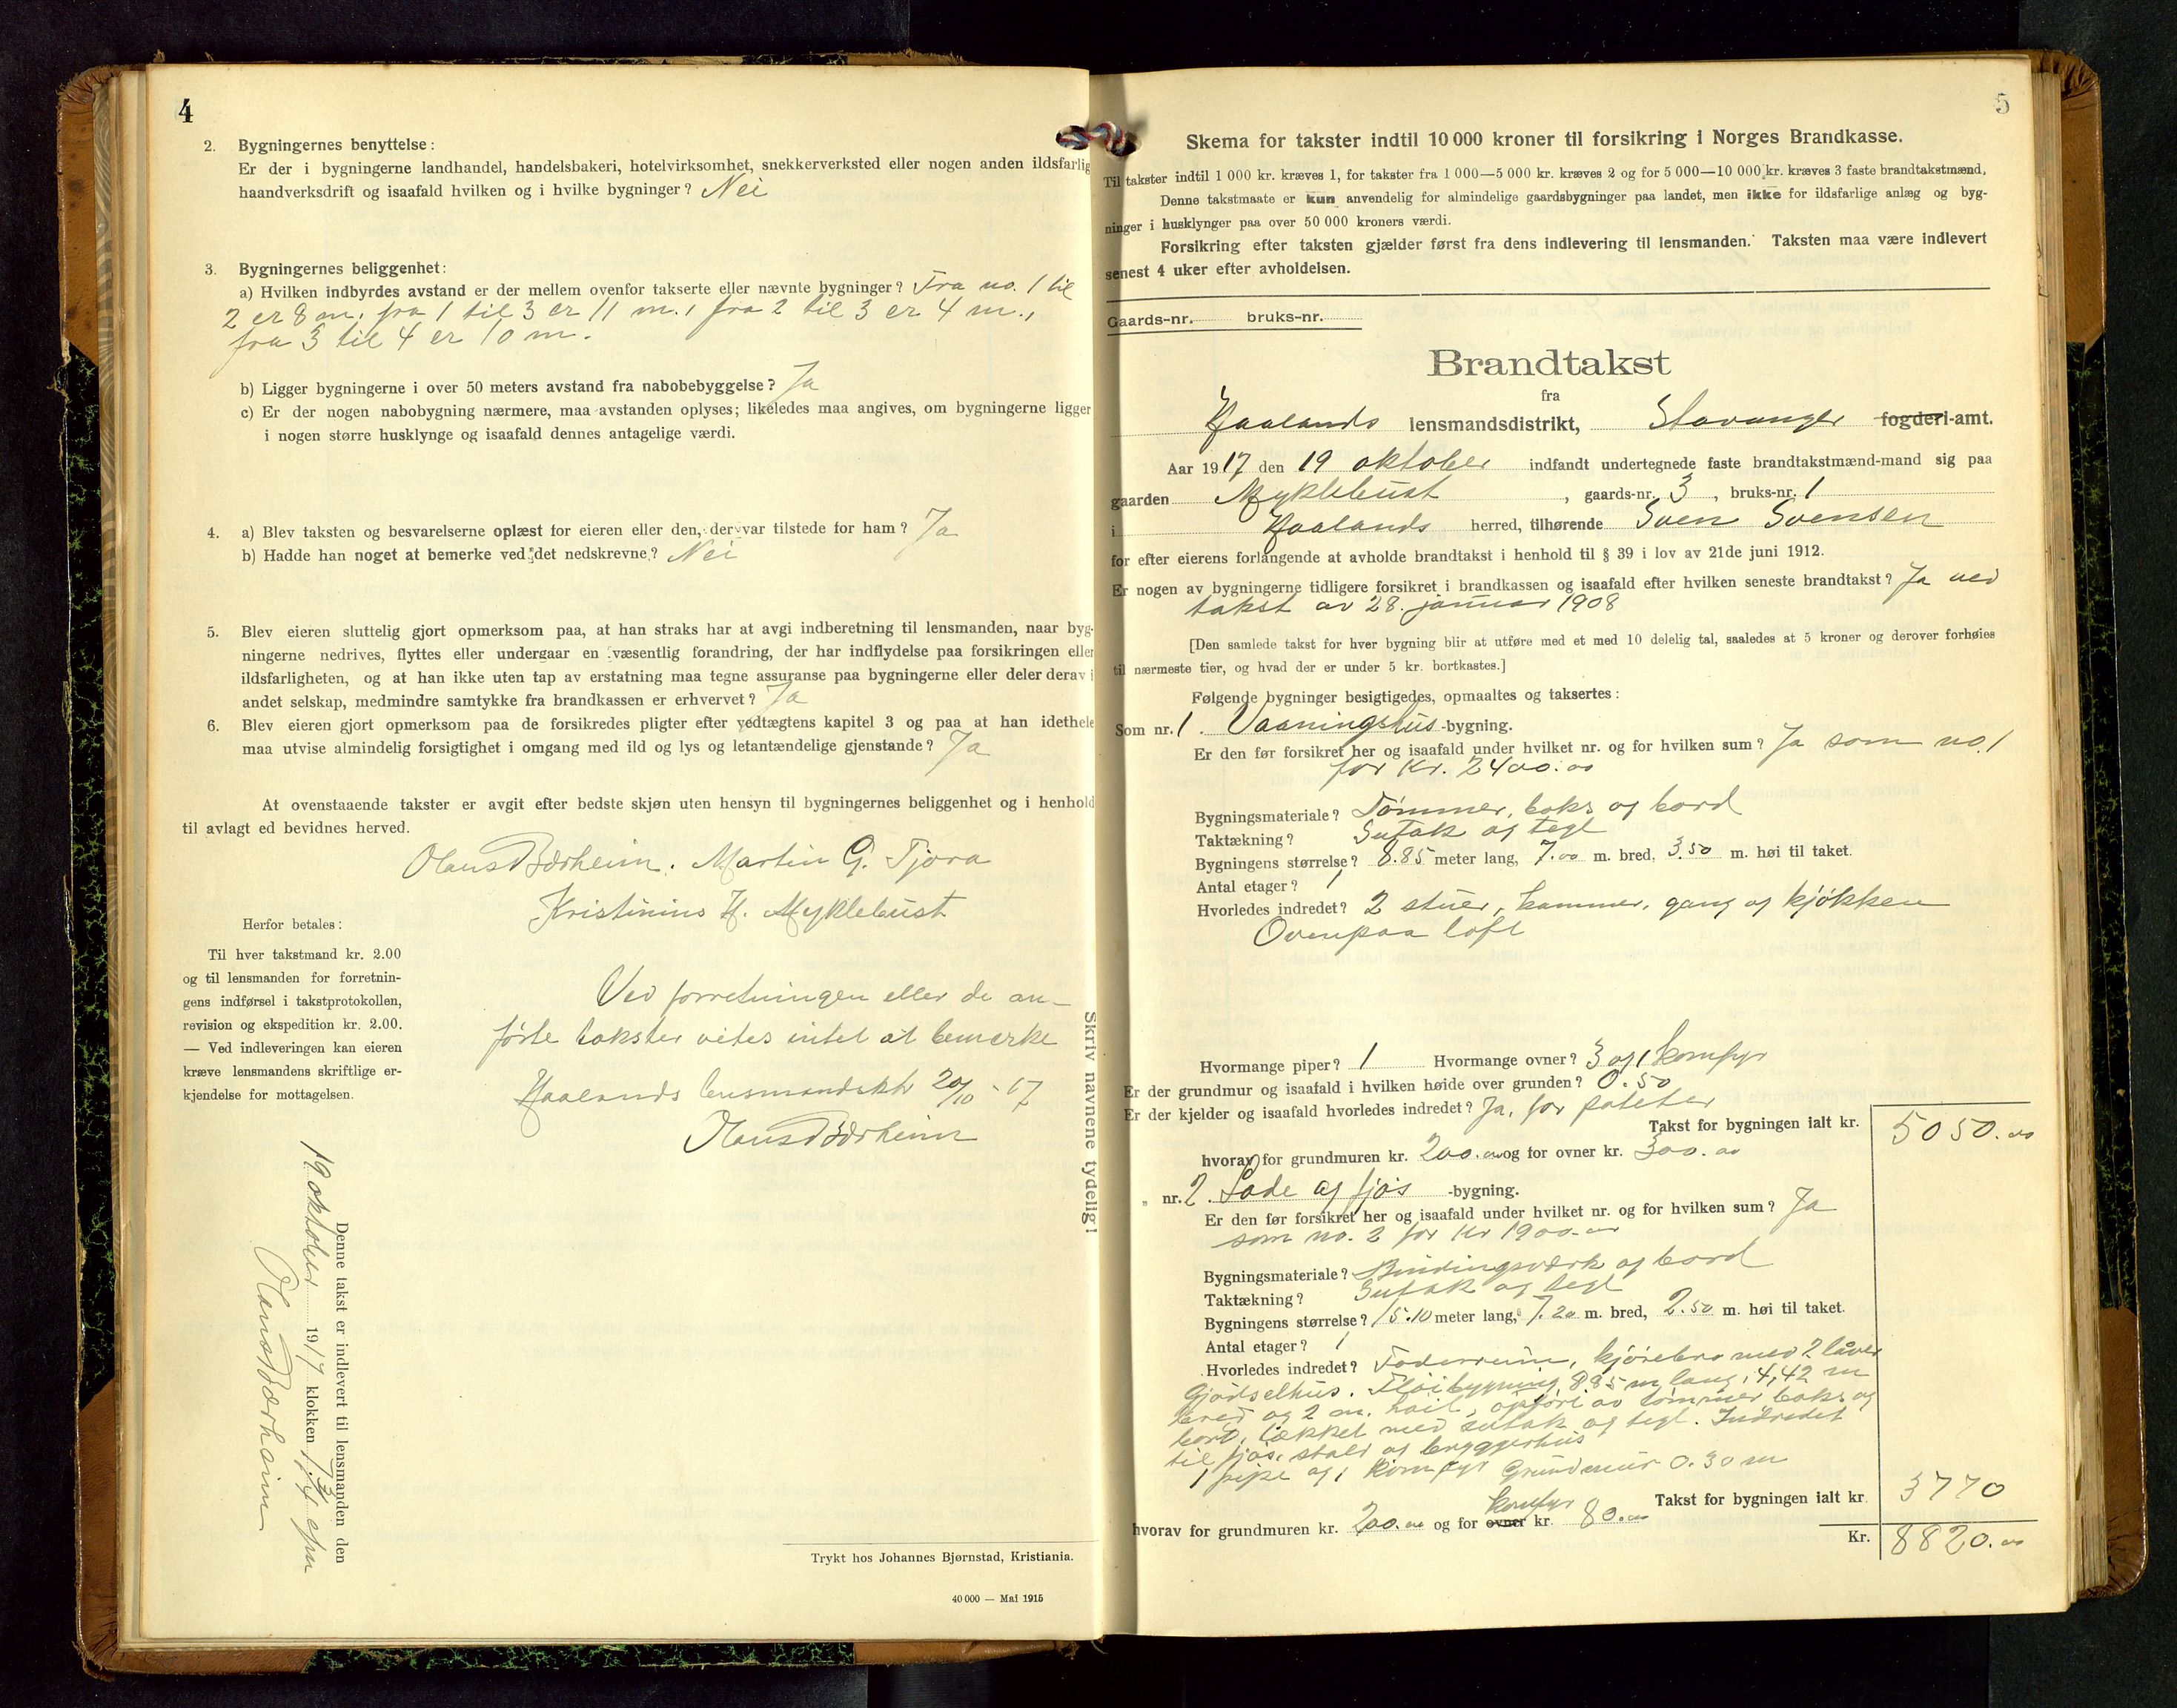 4
2. Bygningernes benyttelse:
Er der i bygningerne landhandel, handelsbakeri, hotelvirksomhet, snekkerverksted eller nogen anden ildsfarlig
haandverksdrift og isaafald hvilken og i hvilke bygninger? Nei
3. Bygningernes beliggenhet:
a) Hvilken indbyrdes avstand er der mellem ovenfor takserte eller nævnte bygninger? Fra no. 1 til
2 er 8 m., fra 1 til 3 er 11 m., fra 2 til 3 er 4 m.,
fra 3 til 4 er 10 m.
b) Ligger bygningerne i over 50 meters avstand fra nabobebyggelse? Ja
c) Er der nogen nabobygning nærmere, maa avstanden oplyses; likeledes maa angives, om bygningerne ligger
i nogen større husklynge og isaafald dennes antagelige værdi.
4. a) Blev taksten og besvarelserne oplæst for eieren eller den, der var tilstede for ham? Ja
b) Hadde han noget at bemerke ved det nedskrevne? Nei
5. Blev eieren sluttelig gjort opmerksom paa, at han straks har at avgi indberetning til lensmanden, naar byg-
ningerne nedrives, flyttes eller undergaar en væsentlig forandring, der har indflydelse paa forsikringen eller
ildsfarligheten, og at han ikke uten tap av erstatning maa tegne assuranse paa bygningerne eller deler derav i
andet selskap, medmindre samtykke fra brandkassen er erhvervet? Ja
6. Blev eieren gjort opmerksom paa de forsikredes pligter efter vedtægtens kapitel 3 og paa at han idethele
maa utvise almindelig forsigtighet i omgang med ild og lys og letantændelige gjenstande? Ja
At ovenstaaende takster er avgit efter bedste skjøn uten hensyn til bygningernes beliggenhet og i henhold
til avlagt ed bevidnes herved.
Olaus Bærheim. Martin G. Tjora
Kristinius H. Myklebust
Herfor betales:
Til hver takstmand kr. 2.00
og til lensmanden for forretnin-
gens indførsel i takstprotokollen,
revision og ekspedition kr. 2.00.
— Ved indleveringen kan eieren
kræve lensmandens skriftlige er-
kjendelse for mottagelsen.
Ved forretningen eller de an-
førte takster vites intet at bemerke
Haalands lensmandsktr 20/10 - 17
Olaus Bærheim
Skriv navnene tydelig!
Denne takst er indlevert til lensmanden den
19 oktober 1917 klokken 1 3/4 efm
Olaus Bærheim
Trykt hos Johannes Bjørnstad, Kristiania.
40 000 — Mai 1915
5
Skema for takster indtil 10 000 kroner til forsikring i Norges Brandkasse.
Til takster indtil 1 000 kr. kræves 1, for takster fra 1 000—5 000 kr. kræves 2 og for 5 000—10 000 kr. kræves 3 faste brandtakstmænd.
Denne takstmaate er kun anvendelig for almindelige gaardsbygninger paa landet, men ikke for ildsfarlige anlæg og byg-
ninger i husklynger paa over 50 000 kroners værdi.
Forsikring efter taksten gjælder først fra dens indlevering til lensmanden. Taksten maa være indlevert
senest 4 uker efter avholdelsen.
Gaards-nr. bruks-nr.
Brandtakst
fra
Haalands lensmandsdistrikt, Stavanger fogderi-amt.
Aar 1917 den 19 oktober indfandt undertegnede faste brandtakstmænd-mand sig paa
gaarden Myklebust, gaards-nr. 3, bruks-nr. 1
i Haalands herred, tilhørende Sven Svensen
for efter eierens forlangende at avholde brandtakst i henhold til § 39 i lov av 21de juni 1912.
Er nogen av bygningerne tidligere forsikret i brandkassen og isaafald efter hvilken seneste brandtakst? Ja ved
takst av 28. januar 1908
[Den samlede takst for hver bygning blir at utføre med et med 10 delelig tal, saaledes at 5 kroner og derover forhøies
til nærmeste tier, og hvad der er under 5 kr. bortkastes.]
Følgende bygninger besigtigedes, opmaaltes og taksertes:
Som nr. 1. Vaaningshus-bygning.
Er den før forsikret her og isaafald under hvilket nr. og for hvilken sum? Ja som no. 1
for Kr. 2400.00
Bygningsmateriale? Tømmer, baks og bord
Taktækning? Sutak og tegl
Bygningens størrelse? 8.85 meter lang, 7.00 m. bred, 3.50 m. høi til taket.
Antal etager? 1
Hvorledes indredet? 2 stuer, kammer, gang og kjøkken
Ovenpaa loft
Hvormange piper? 1 Hvormange ovner? 3 og 1 komfyr
Er der grundmur og isaafald i hvilken høide over grunden? 0.50
Er der kjelder og isaafald hvorledes indredet? Ja, for poteter
Takst for bygningen ialt kr. 5050.00
hvorav for grundmuren kr. 200.00 og for ovner kr. 300.00
" nr. 2. Lade og fjøs -bygning.
Er den før forsikret her og isaafald under hvilket nr. og for hvilken sum? Ja
som no. 2 for Kr 1900.00
Bygningsmateriale? Bindingsværk og bord
Taktækning? Sutak og tegl
Bygningens størrelse? 15.10 meter lang, 7.20 m. bred, 2.50 m. høi til taket.
Antal etager? 1
Hvorledes indredet? Foderrum, kjørebro med 2 låver
Gjødselhus. Fløibygning 8.85 m lang, 4,42 m
bred og 2 m. høit, opført av tømmer baks og
bord, tækket med sutak og tegl. Indredet
til fjøs, stald og bryggerhus
1 pipe og 1 komfyr Grundmur 0.30 m
Takst for bygningen ialt kr. 3770
hvorav for grundmuren kr. 200.00 og for ovner komfyr kr. 80.00
Kr. 8820.00